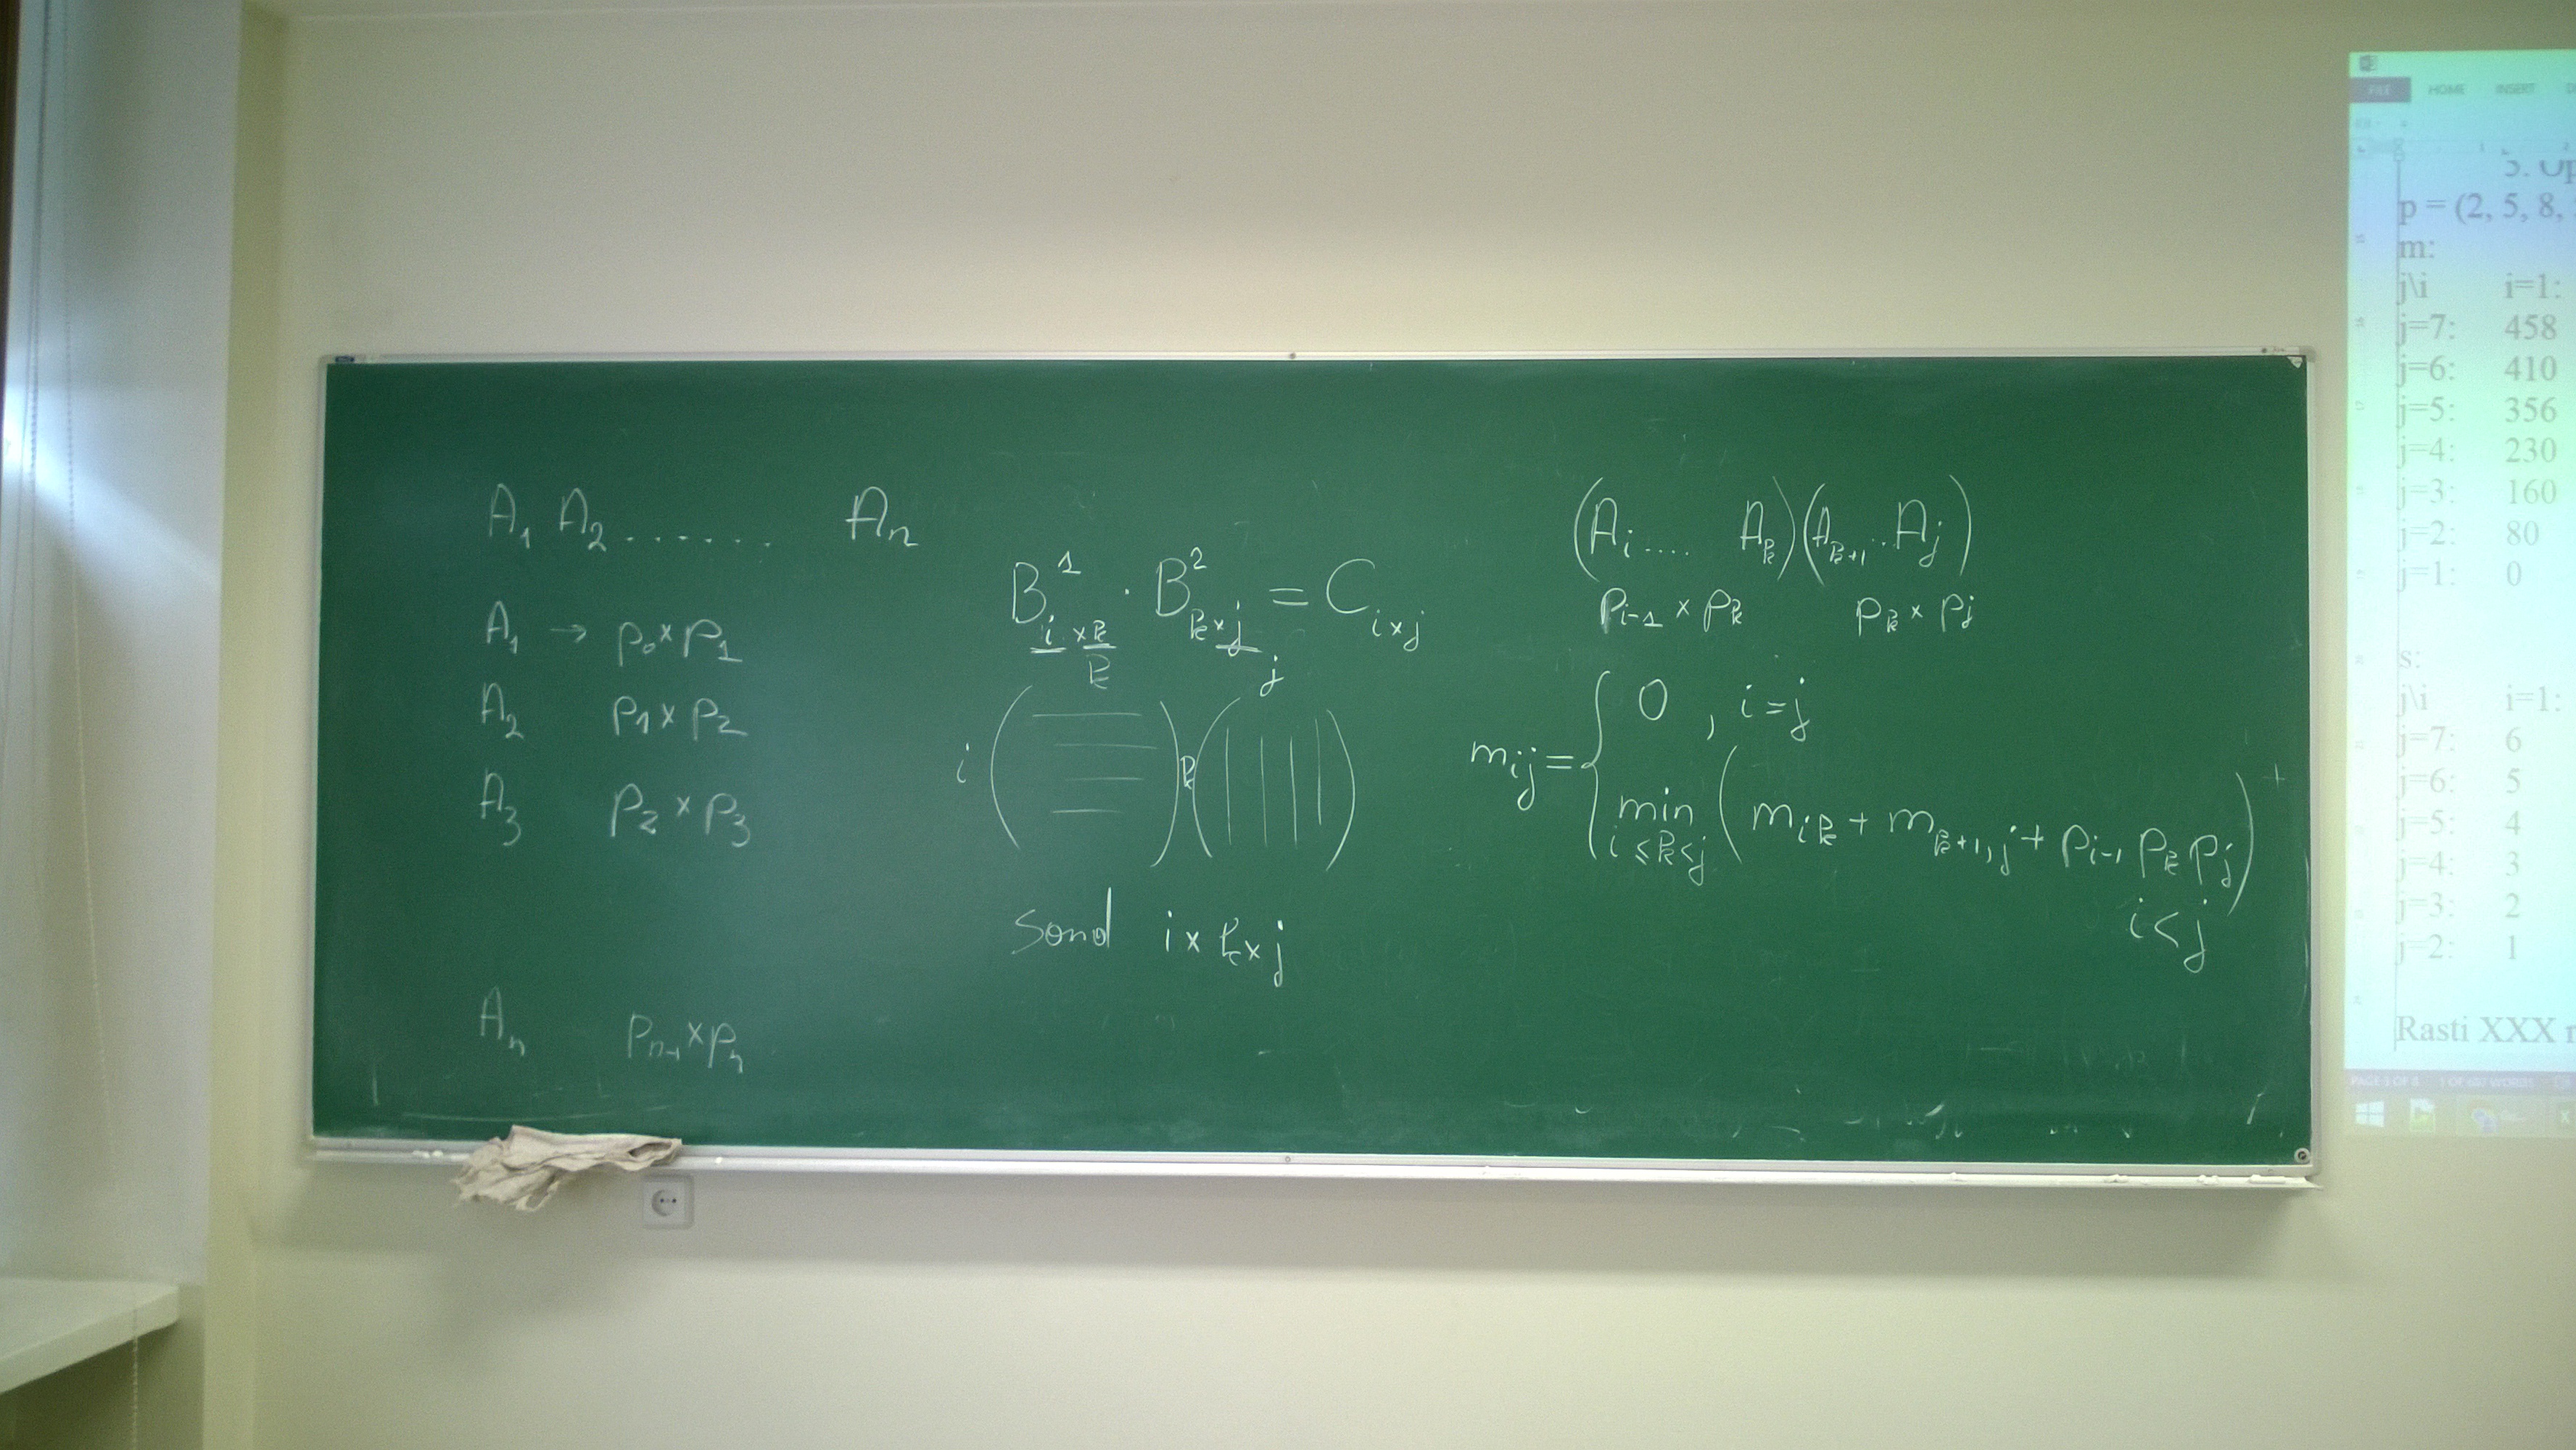 A₁ A₂ ....... Aₙ
A₁ → p₀ × p₁
A₂ p₁ × p₂
A₃ p₂ × p₃
Aₙ pₙ₋₁ × pₙ
B¹ᵢ ₓ ₖ · B²ₖ ₓ ⱼ = Cᵢ ₓ ⱼ
k j
i ( ) k ( )
i × k × j
(Aᵢ .... Aₖ)(Aₖ₊₁ .. Aⱼ)
pᵢ₋₁ × pₖ pₖ × pⱼ
mᵢⱼ = { 0 , i = j
min i ≤ k < j (mᵢₖ + mₖ₊₁,ⱼ + pᵢ₋₁ pₖ pⱼ)
i < j
FILE HOME INSERT
p = (2, 5, 8,
m:
j\i i=1:
j=7: 458
j=6: 410
j=5: 356
j=4: 230
j=3: 160
j=2: 80
j=1: 0
s:
j\i i=1:
j=7: 6
j=6: 5
j=5: 4
j=4: 3
j=3: 2
j=2: 1
Rasti XXX